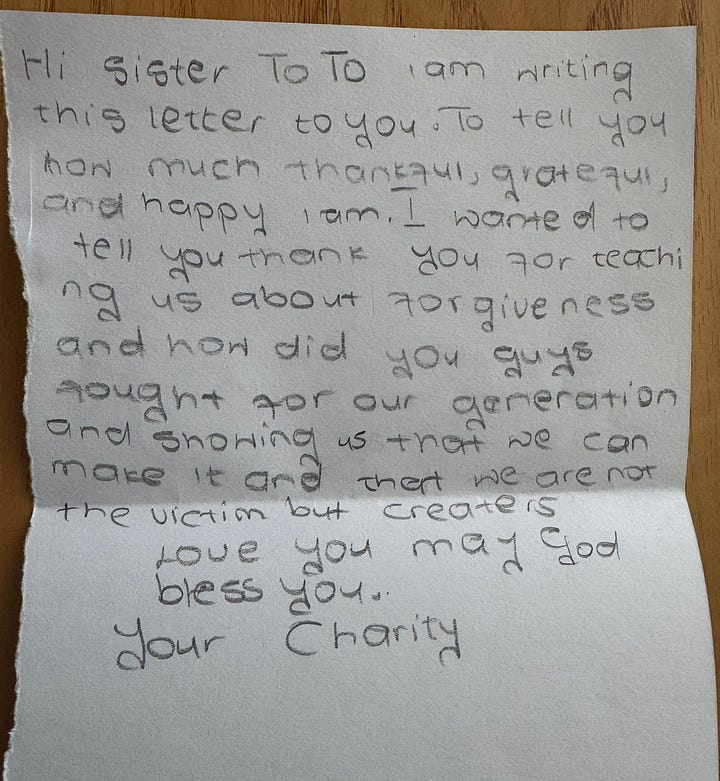 Hi sister ToTo i am writing
this letter to you. To tell you
how much thankful, grateful,
and happy i am. I wanted to
tell you thank you for teachi
ng us about forgiveness
and how did you guys
fought for our generation
and showing us that we can
make it and that we are not
the victim but creaters
Love you may God
bless you..
Your Charity